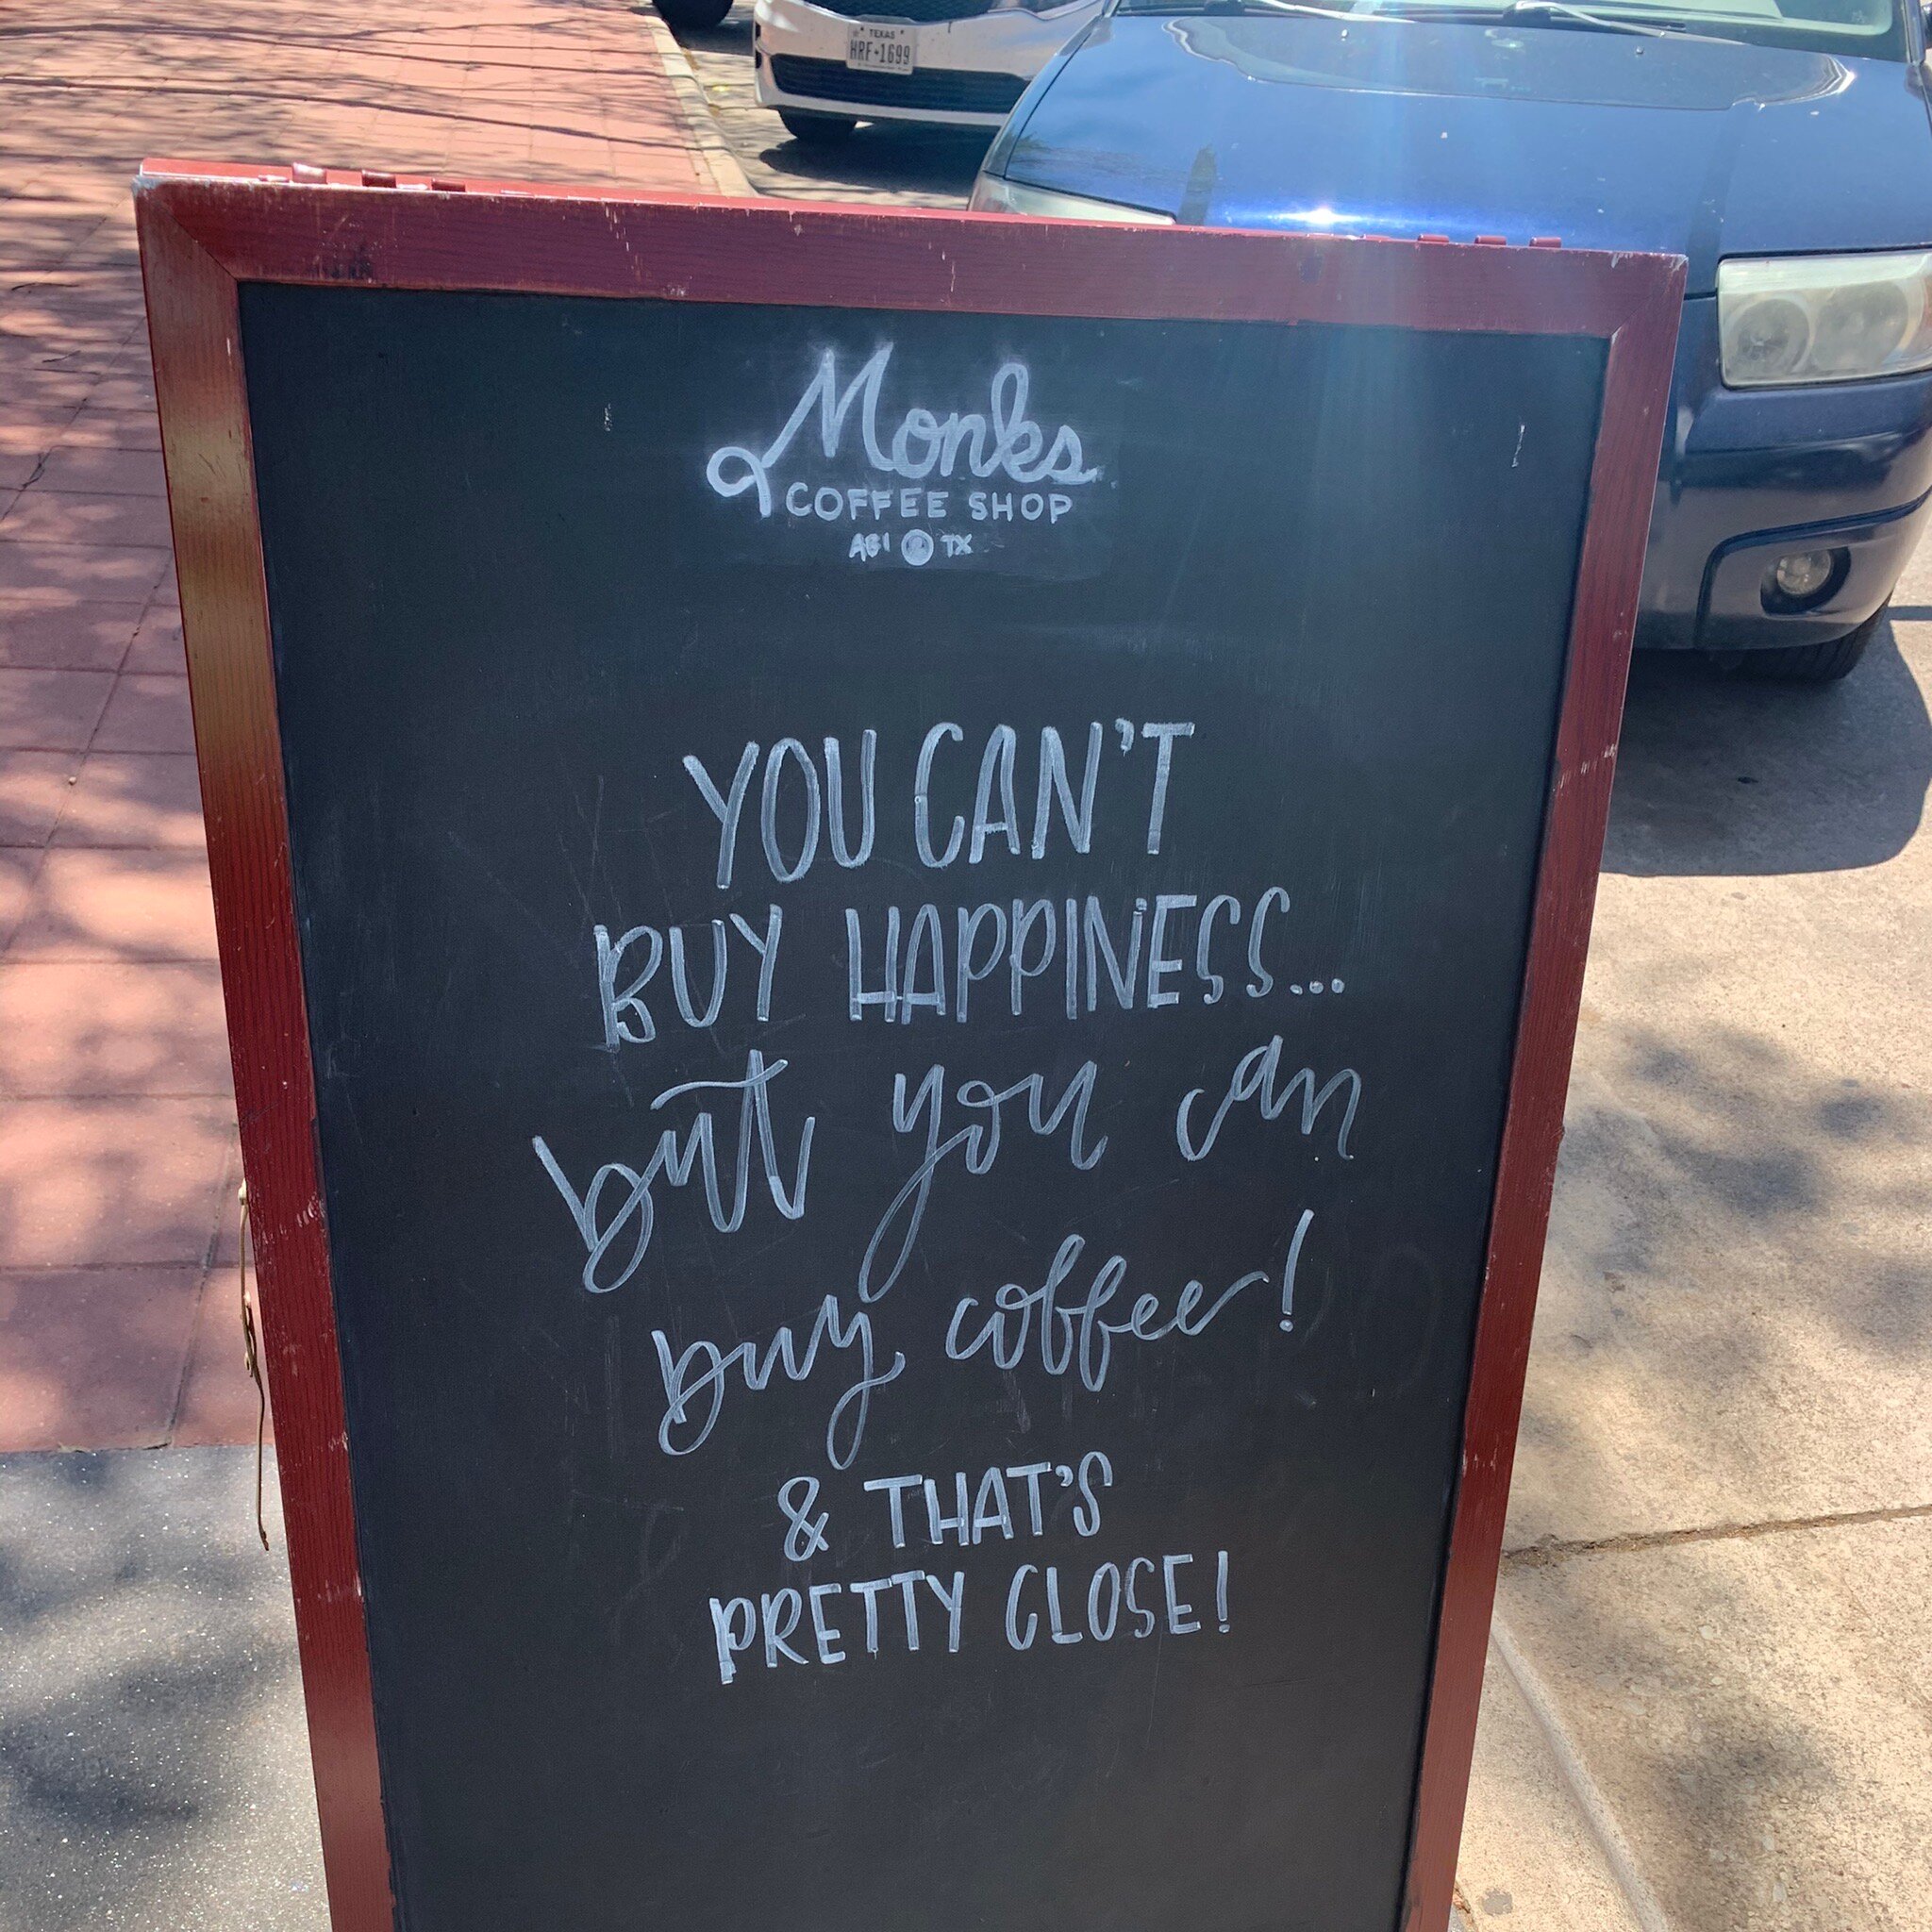 TEXAS
HRF★1699
Monks
COFFEE SHOP
ABI TX
YOU CAN'T
BUY HAPPINESS...
but you can
buy coffee!
& THAT'S
PRETTY CLOSE!